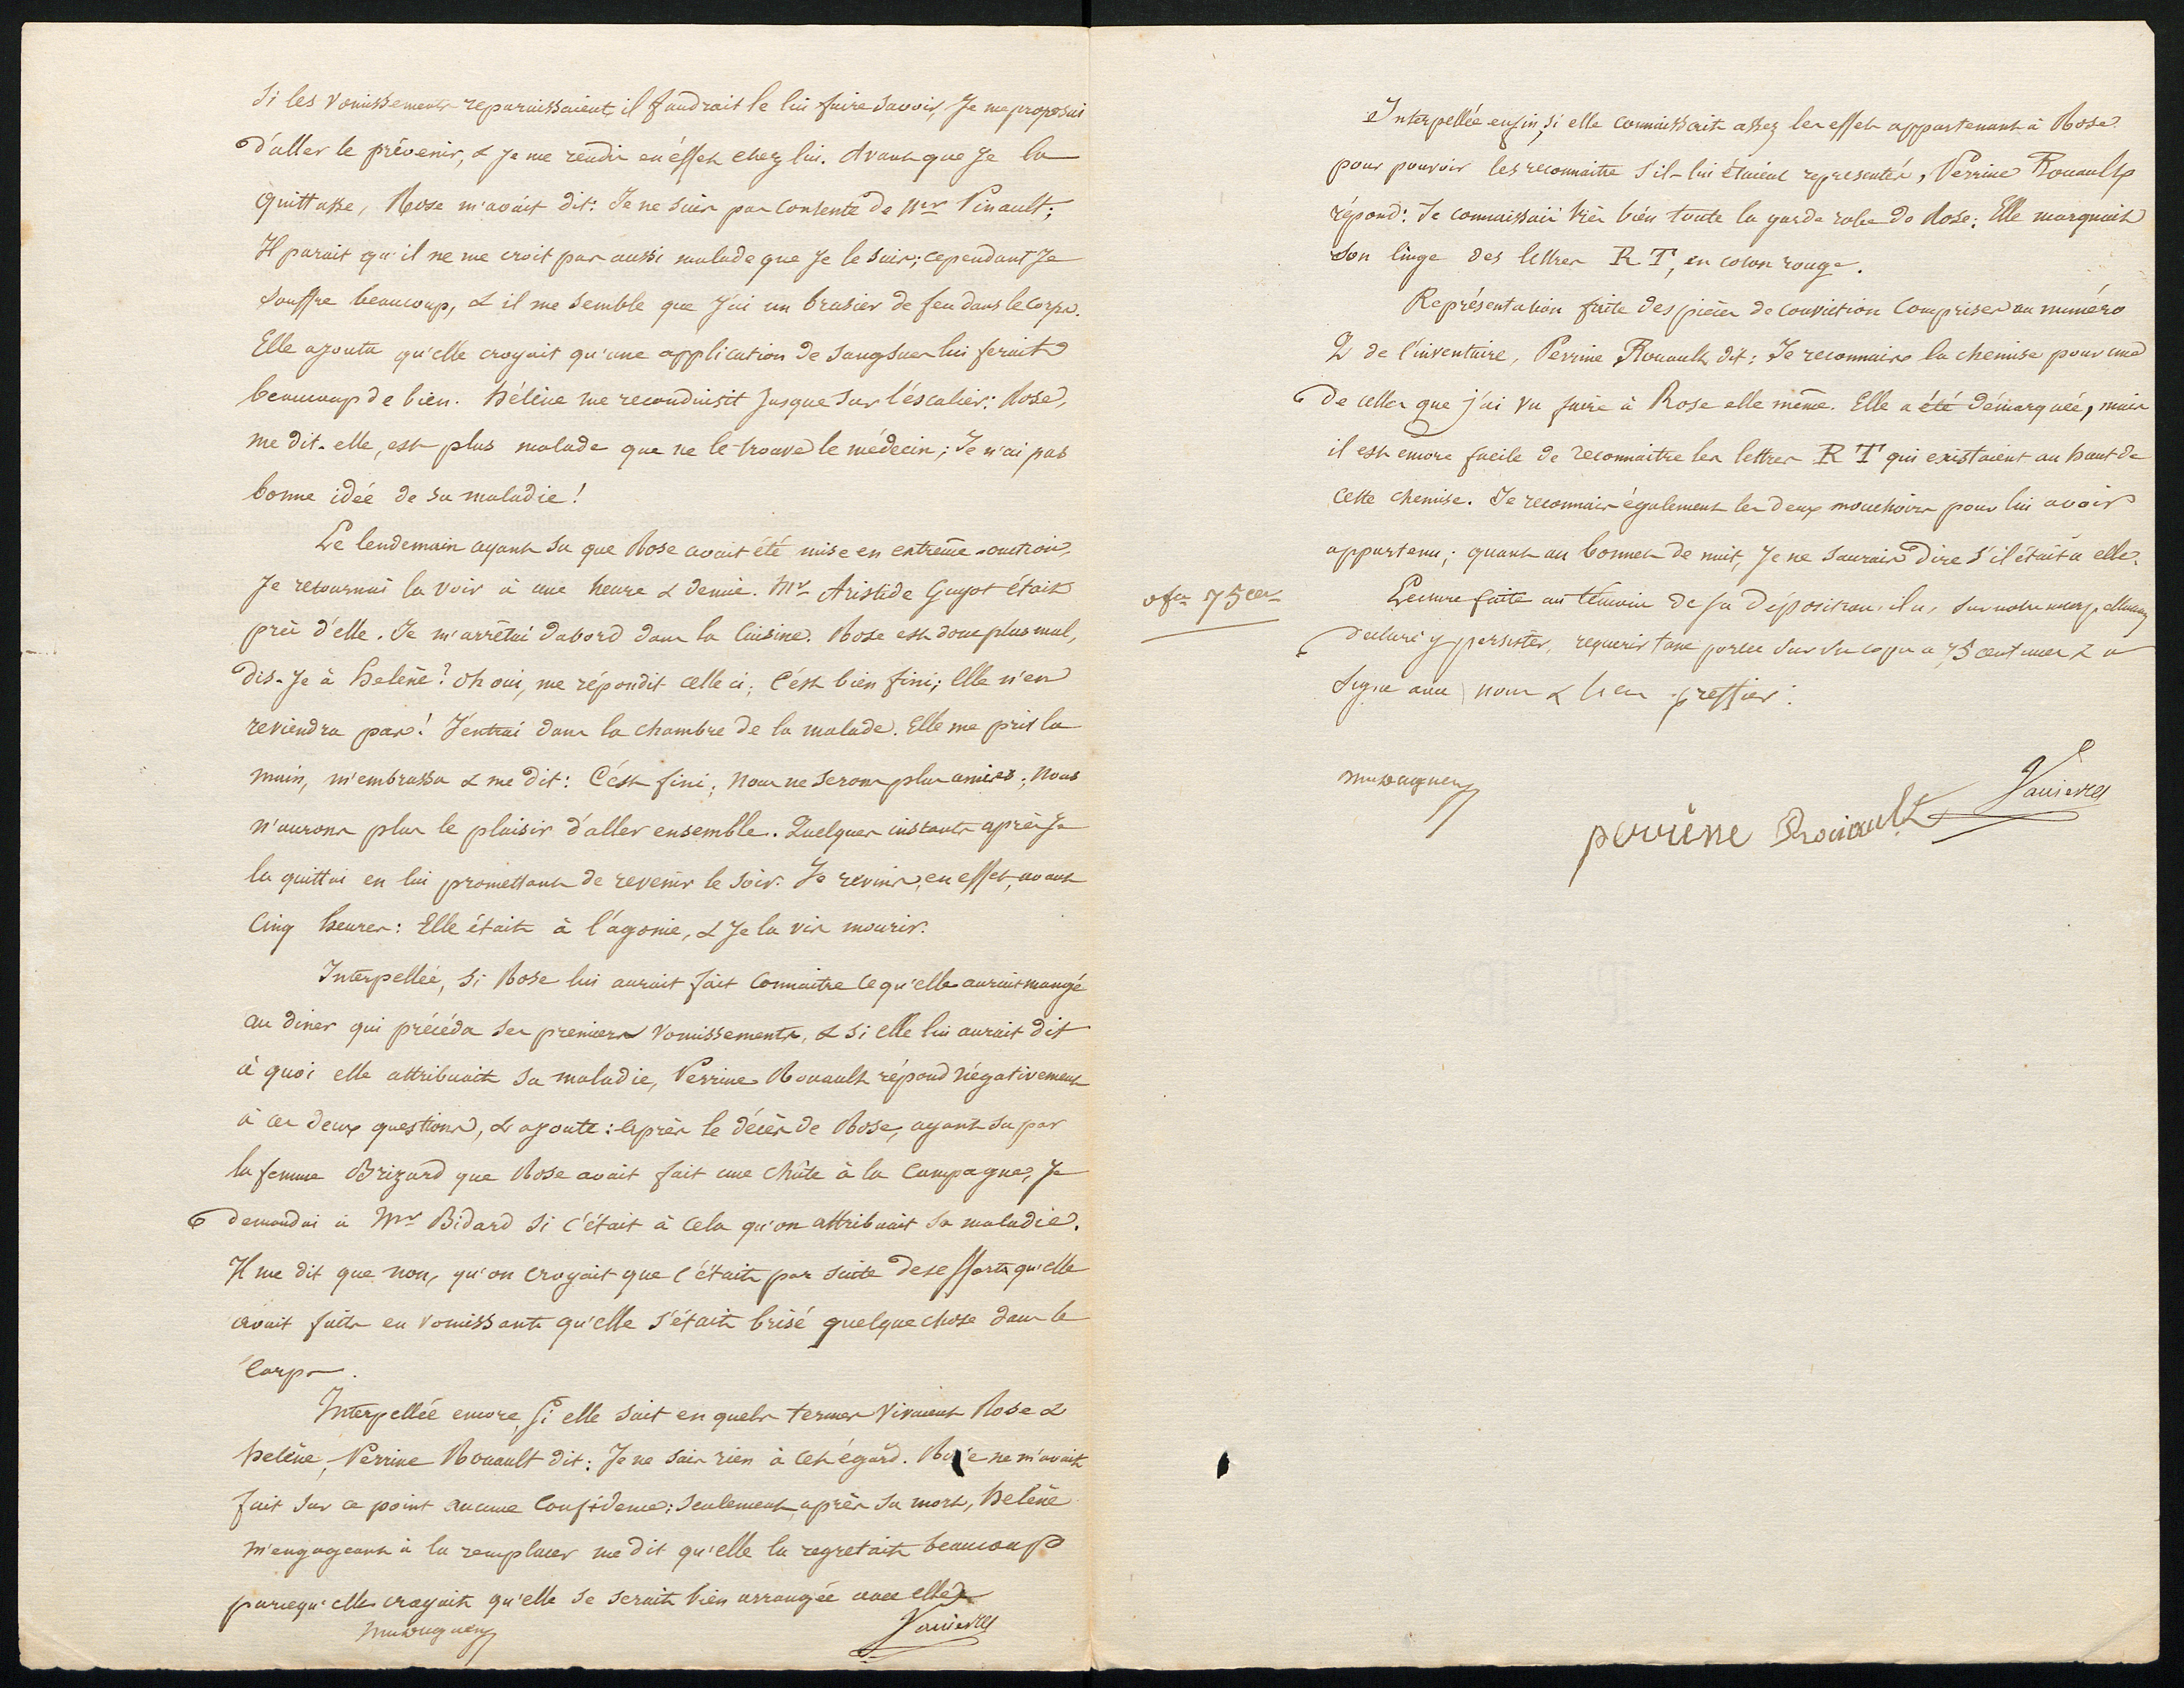 Si les vomissements reparaissaient, il faudrait le lui faire savoir, Je me proposai
d'aller le prévenir, & Je me rendis en éffet chez lui. Avant que Je la
quittasse, Rose m'avait dit: Je ne suis pas contente de Mr Pinault;
Il parait qu'il ne me croit pas aussi malade que Je le suis; cependant Je
souffre beaucoup, & il me semble que J'ai un brasier de feu dans le corps.
Elle ajouta qu'elle croyait qu'une application de sangsues lui ferait
beaucoup de bien. Hélène me reconduisit Jusque sur l'éscalier: Rose,
me dit-elle, est plus malade que ne le trouve le médecin; Je n'ai pas
bonne idée de sa maladie!
Le lendemain ayant su que Rose avait été mise en extrême-onction,
Je retournai la voir à une heure & demie. Mr Aristide Guyot était
près d'elle. Je m'arrêtai dabord dans la Cuisine. Rose est donc plus mal,
dis-Je à Helène? Oh oui, me répondit celle ci; C'est bien fini; Elle n'en
reviendra pas! J'entrai dans la chambre de la malade. Elle me prit la
main, m'embrassa & me dit: C'est fini; nous ne serons plus amies; nous
n'aurons plus le plaisir d'aller ensemble. Quelques instants après Je
la quittai en lui promettant de revenir le soir. Je revins, en effet, avant
Cinq heures: Elle était à l'agonie, & Je la vis mourir.
Interpellée, si Rose lui aurait fait connaitre ce qu'elle aurait mangé
au diner qui précéda ses premiers vomissements, & si elle lui aurait dit
à quoi elle attribuait sa maladie, Perrine Rouault répond négativement
à ces deux questions, & ajoute: après le décès de Rose, ayant su par
la femme Brizard que Rose avait fait une chûte à la Campagne, Je
demandai à Mr Bidard si c'était à cela qu'on attribuait sa maladie.
Il me dit que non, qu'on croyait que c'était par suite des efforts qu'elle
avait faits en vomissant qu'elle s'était brisé quelque chose dans le
Corps.
Interpellée encore, si elle sait en quels termes vivaient Rose &
Helène, Perrine Rouault dit: Je ne sais rien à cet égard. Rose ne m'avait
fait sur ce point aucune Confidence; seulement, après sa mort, Helène
m'engageant à la remplacer me dit qu'elle la regretait beaucoup
parcequ'elle croyait qu'elle se serait bien arrangée avec elle
Vannier
Interpellée enfin, si elle connaissait assez les effets appartenant à Rose
pour pouvoir les reconnaitre s'ils lui étaient representés, Perrine Rouault
répond: Je connaissais très bien toute la garde robe de Rose; Elle marquait
son linge des lettres R T, en coton rouge.
Représentation faite des pièces de conviction comprises au numéro
2 de l'inventaire, Perrine Rouault dit: Je reconnais la chemise pour une
de celles que j'ai vu faire à Rose elle même. Elle a été démarquée, mais
il est encore facile de reconnaitre les lettres R T qui existaient au haut de
cette chemise. Je reconnais également les deux mouchoirs pour lui avoir
appartenu; quant au bonnet de nuit, Je ne saurais dire s'il était a elle.
ofr 75ces
Lecture faite au témoin de sa déposition, il a, sur notre interpellation
déclaré y persister, requeris taxe portée sur sa copie a 75 centimes & a
signé avec nous & le greffier:
Vannier
perrine Rouault